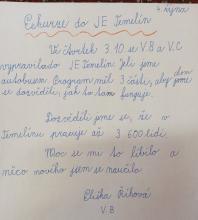 4. října
Exkurze do JE Temelín
Ve čtvrtek 3.10 se V.B a V.C
vypravila do JE Temelín. Jeli jme
autobusem. Program měl 3 části, aby jme
den
se dozvěděli, jak to tam funguje.
Dozvěděli jsme se, že v
Temelínu pracuje až 3 600 lidí.
Moc se mi to líbilo a
něco nového jsem se naučila.
Eliška Říhová
V.B